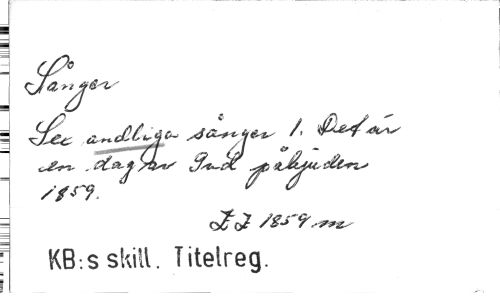 Sånger
See andliga sånger 1. Det är
en dag av Gud påbjuden
1859.
EE 1859 m
KB:s skill. Titelreg.